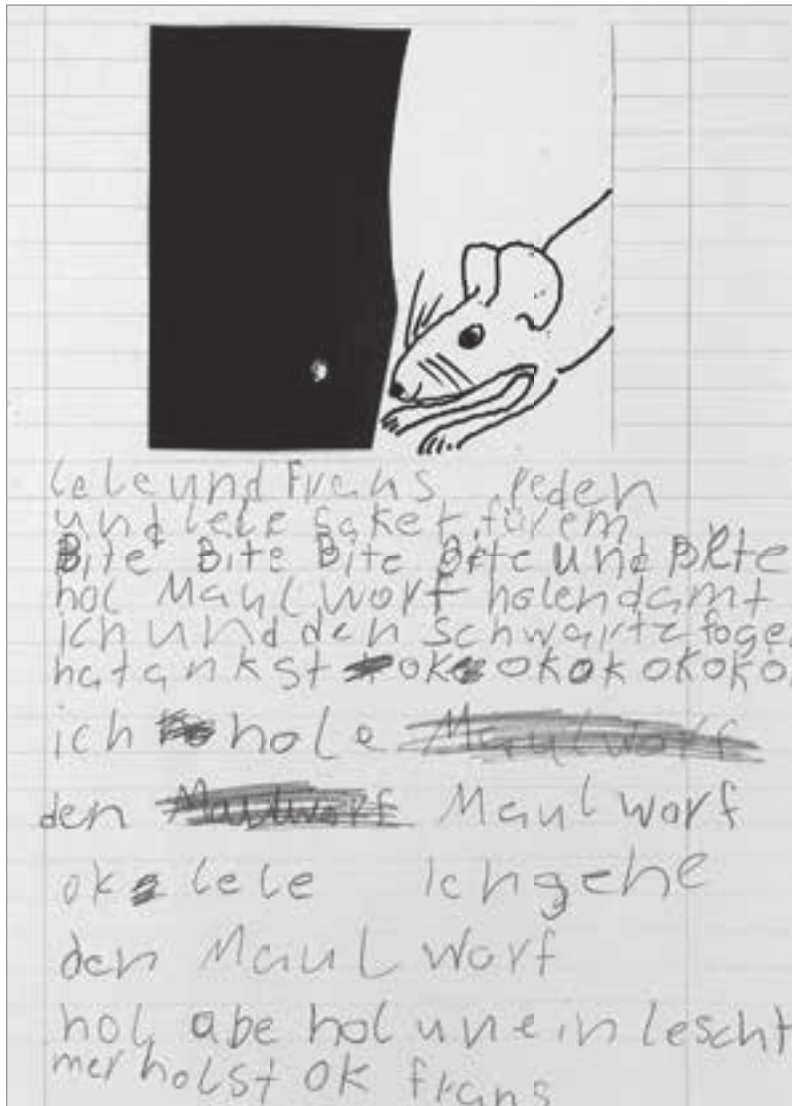 lele und Frans reden
und lele saket fürem
Bite Bite Bite Bite und Bite
hol Maul worf holen damt
ich und den schwartze foge
hatankst ok okokokokok
ich hole
den Maul worf
ok lele ich gehe
den Maul worf
hol abe hol un ein lescht
mer holst ok frans